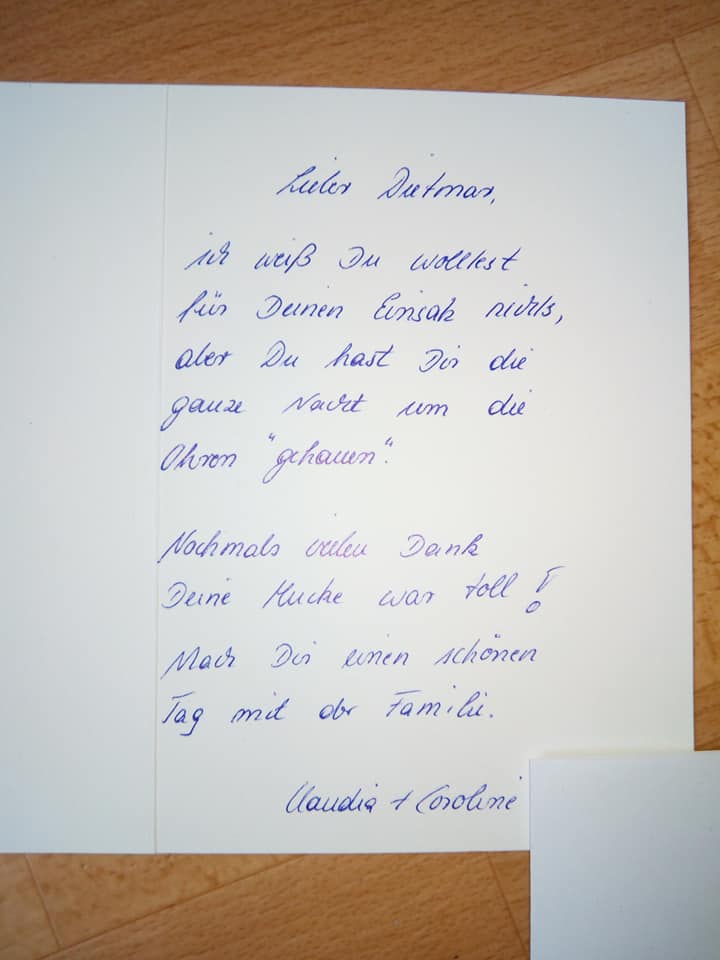 Lieber Dietmar,
ich weiß Du wolltest
für Deinen Einsatz nichts,
aber Du hast Dir die
ganze Nacht um die
Ohren "gehauen".
Nochmals vielen Dank
Deine Mucke war toll!
Mach Dir einen schönen
Tag mit der Familie.
Claudia + Caroline